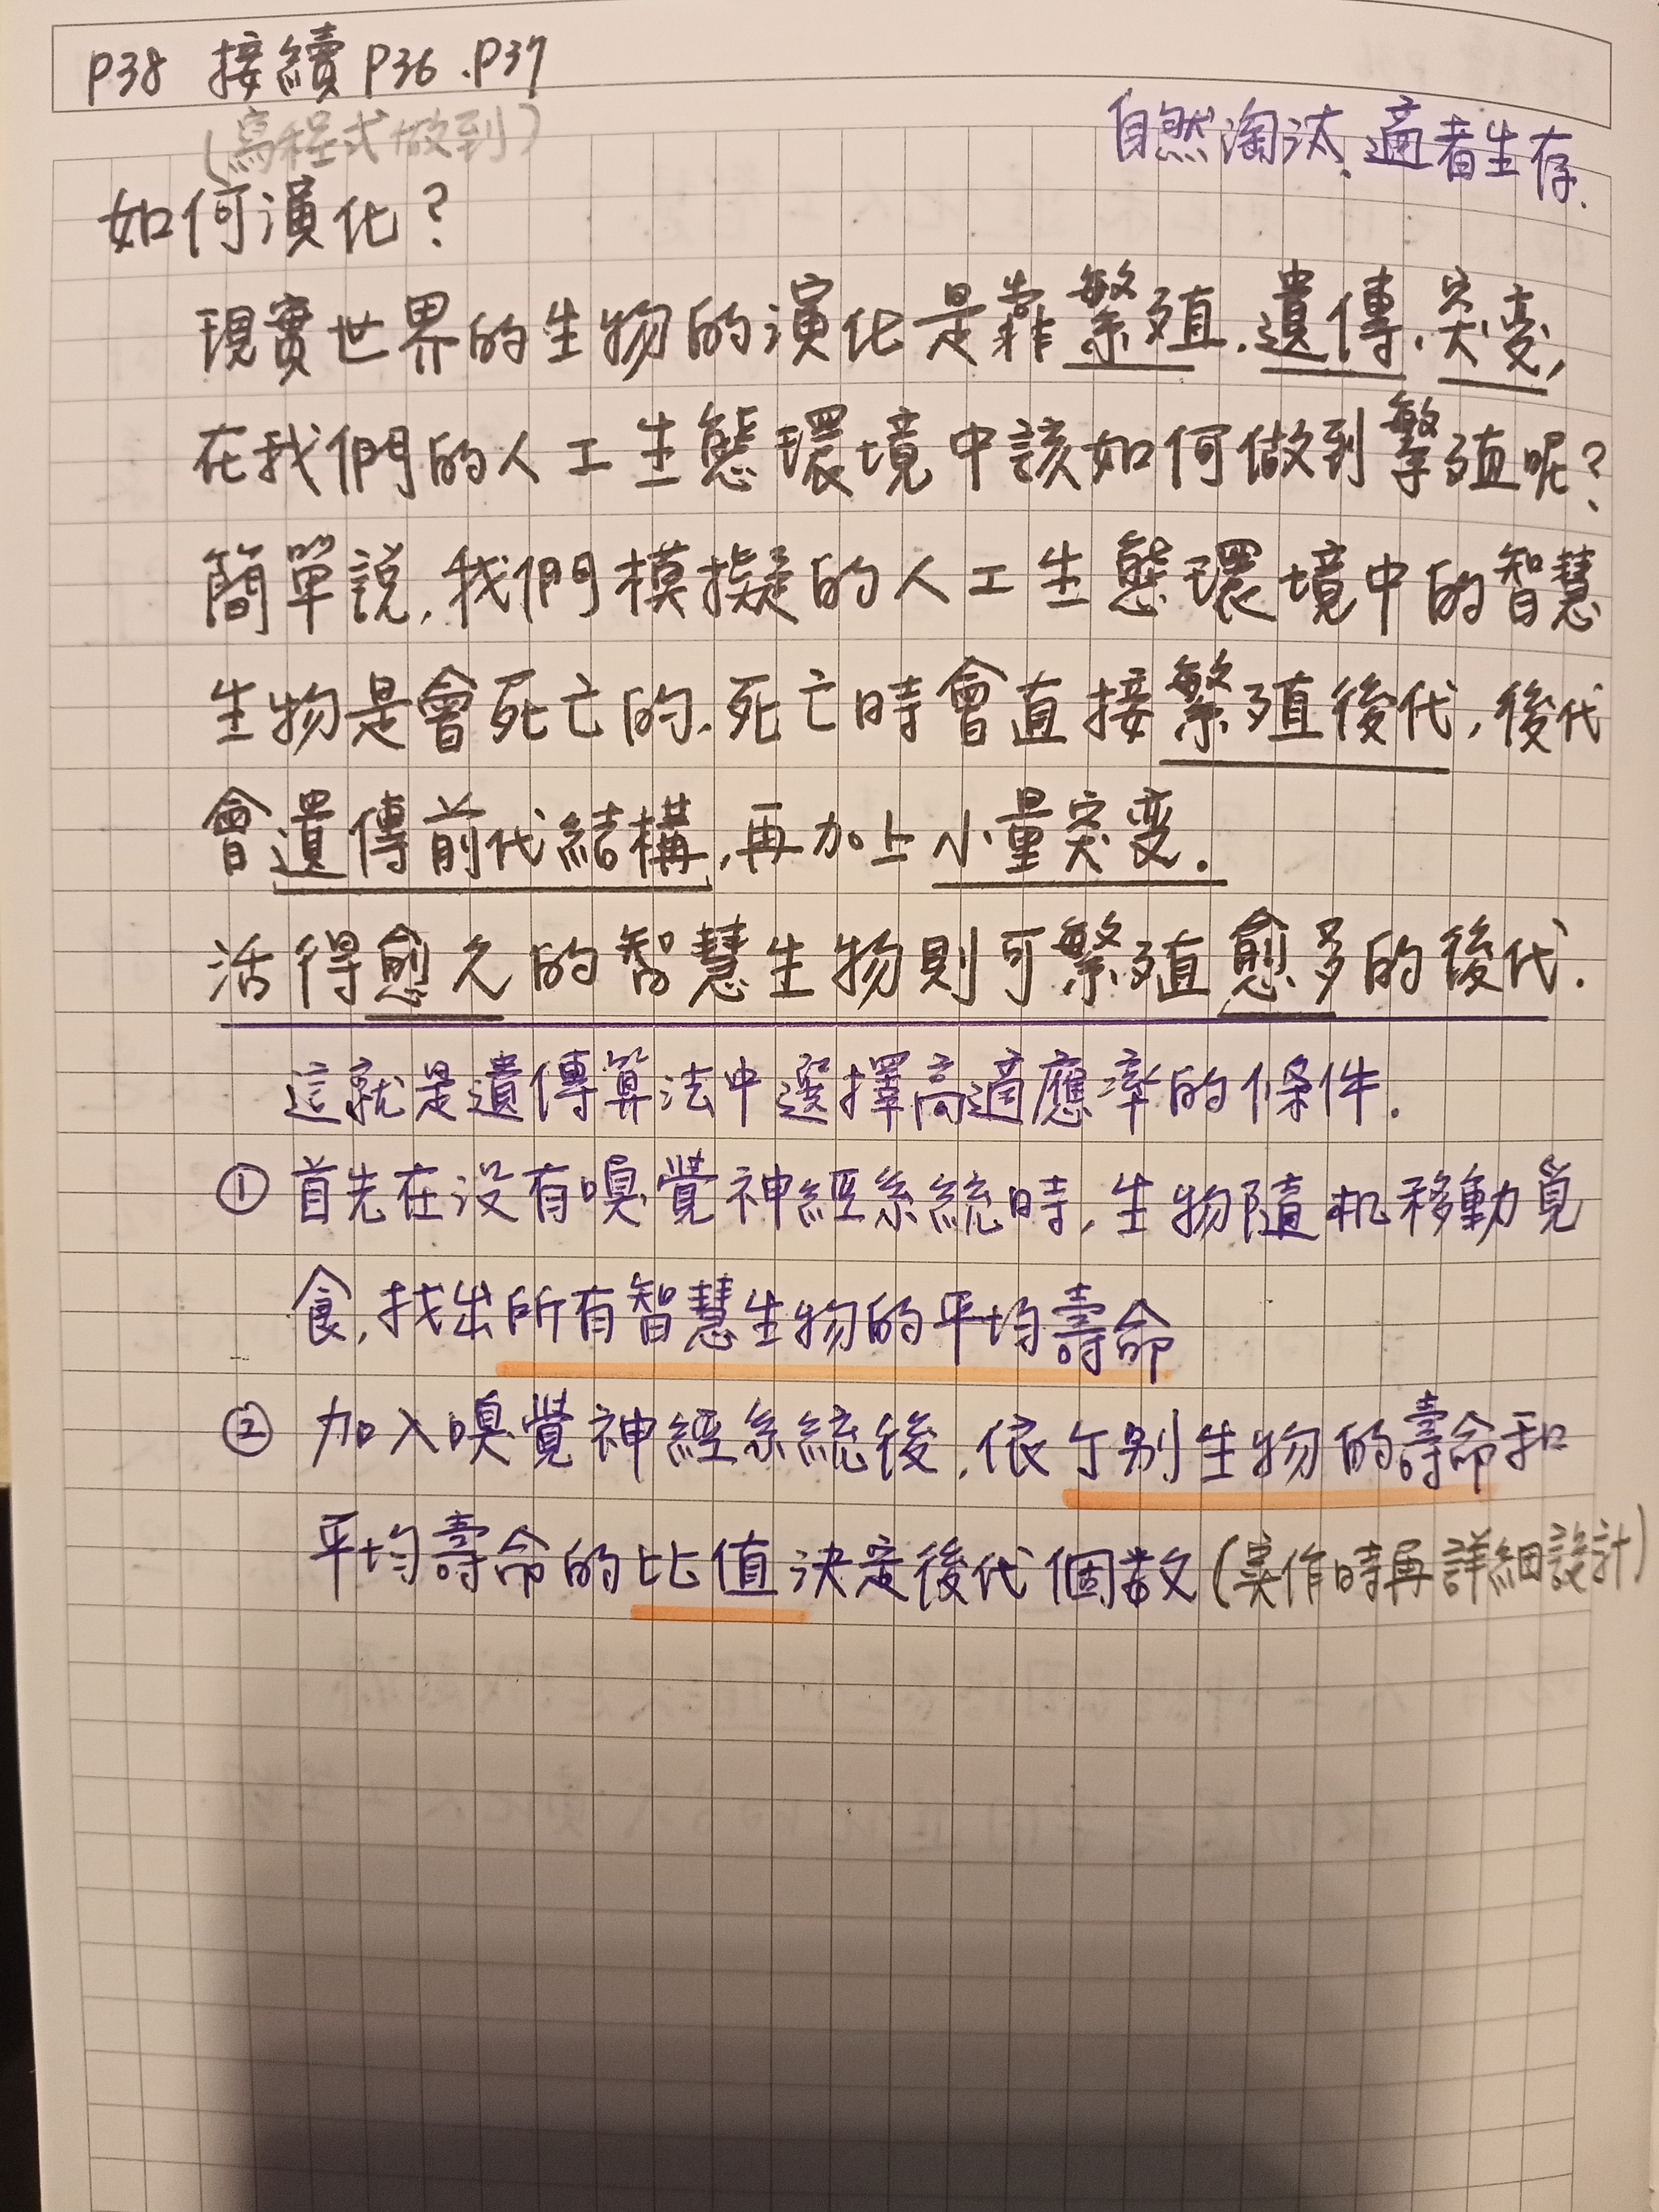 P38 接續 P36、P37
(寫程式做到)
自然淘汰、適者生存.
如何演化?
現實世界的生物的演化是靠繁殖、遺傳、突变,
在我們的人工生態環境中該如何做到繁殖呢?
簡單說,我們模擬的人工生態環境中的智慧
生物是會死亡的,死亡時會直接繁殖後代,後代
會遺傳前代結構,再加上小量突变.
活得愈久的智慧生物則可繁殖愈多的後代.
這就是遺傳算法中選擇高適應率的條件.
① 首先在沒有嗅覺神經系統時,生物隨机移動覓
食,找出所有智慧生物的平均壽命
② 加入嗅覺神經系統後,依个别生物的壽命和
平均壽命的比值決定後代個数(實作時再詳細設計)